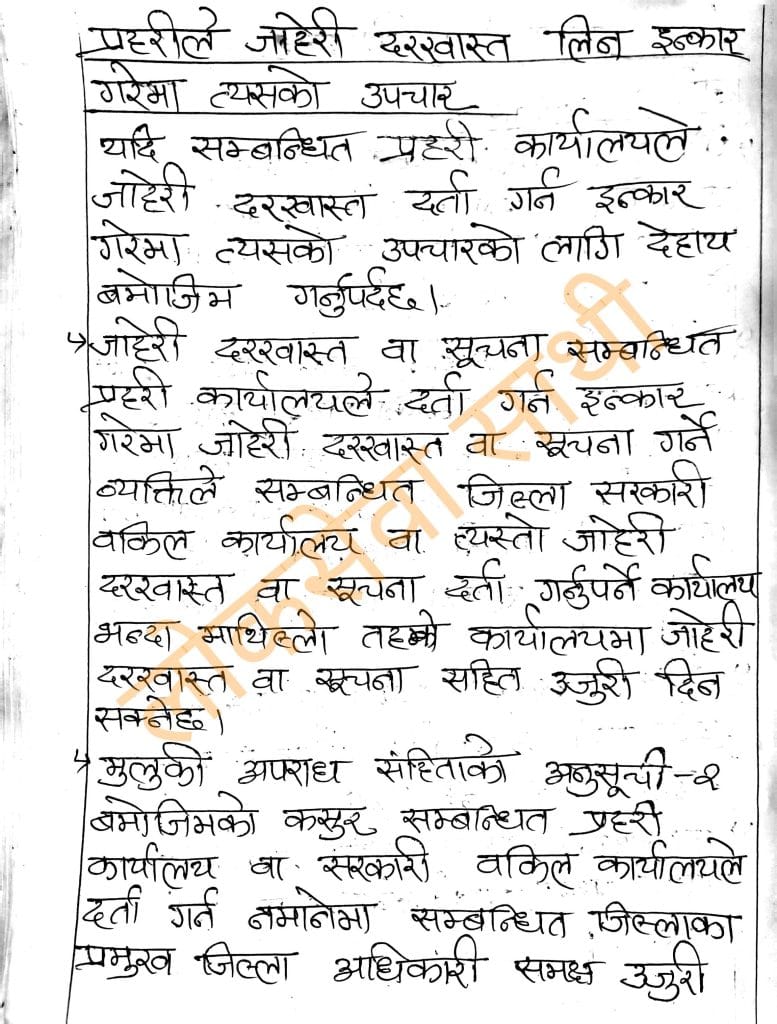 प्रहरीले जाहेरी दरखास्त लिन इन्कार
गरेमा त्यसको उपचार
यदि सम्बन्धित प्रहरी कार्यालयले
जाहेरी दरखास्त दर्ता गर्न इन्कार
गरेमा त्यसको उपचारको लागि देहाय
बमोजिम गर्नुपर्दछ।
↳ जाहेरी दरखास्त वा सूचना सम्बन्धित
प्रहरी कार्यालयले दर्ता गर्न इन्कार
गरेमा जाहेरी दरखास्त वा सूचना गर्ने
व्यक्तिले सम्बन्धित जिल्ला सरकारी
वकिल कार्यालय वा त्यस्तो जाहेरी
दरखास्त वा सूचना दर्ता गर्नुपर्ने कार्यालय
भन्दा माथिल्लो तहको कार्यालयमा जाहेरी
दरखास्त वा सूचना सहित उजुरी दिन
सक्नेछ।
↳ मुलुकी अपराध संहिताको अनुसूची-२
बमोजिमको कसुर सम्बन्धित प्रहरी
कार्यालय वा सरकारी वकिल कार्यालयले
दर्ता गर्न नमानेमा सम्बन्धित जिल्लाका
प्रमुख जिल्ला अधिकारी समक्ष उजुरी
लोकसेवा साथी